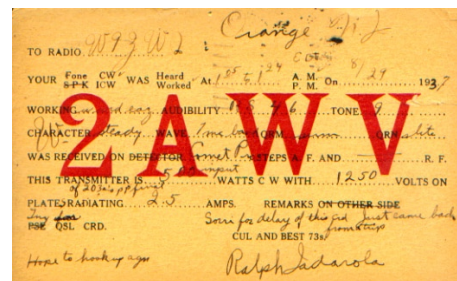 Orange N.J.
TO RADIO W9ZWL
YOUR Fone CW WAS Heard At 1 25 to 1 24 A. M. On 8/29 1937
SPK ICW Worked P. M.
WORKING AUDIBILITY TONE 9
CHARACTER steady WAVE QRM QRN
2AWV
W
WAS RECEIVED ON DETECTOR STEPS A. F. AND R. F.
THIS TRANSMITTER IS 500 WATTS C W WITH 1250 VOLTS ON
of 203a's pp final input
PLATE; RADIATING 2.5 AMPS. REMARKS ON OTHER SIDE
PSE QSL CRD. Sorri for delay of this crd. Just came back
from trip
CUL AND BEST 73s
Hope to hook u agn
Ralph Iadarola